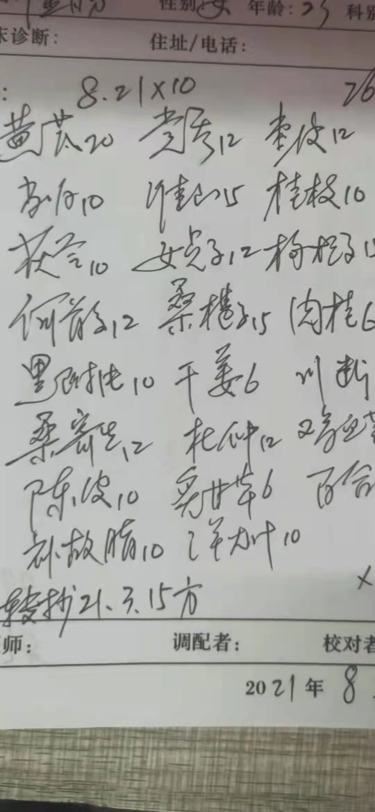 性别 女 年龄: 23 科别
床诊断: 住址/电话:
: 8.21×10 26
黄芪20 党参12 枣皮12
淮山15 桂枝10
茯苓10 女贞子12 枸杞子
何首乌12 桑椹子15 肉桂6
黑附片10 干姜6 川断
桑寄生12 杜仲12
陈皮10 炙甘草6 百合
补故脂10 10
转抄21.3.15方
师: 调配者: 校对者
2021年 8